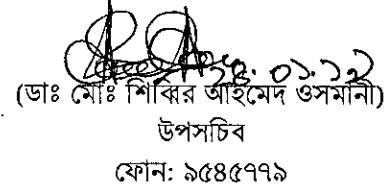 ২৪.০১.১২
(ডাঃ মোঃ শিব্বির আহমেদ ওসমানী)
উপসচিব
ফোন: ৯৫৪৫৭৭৯